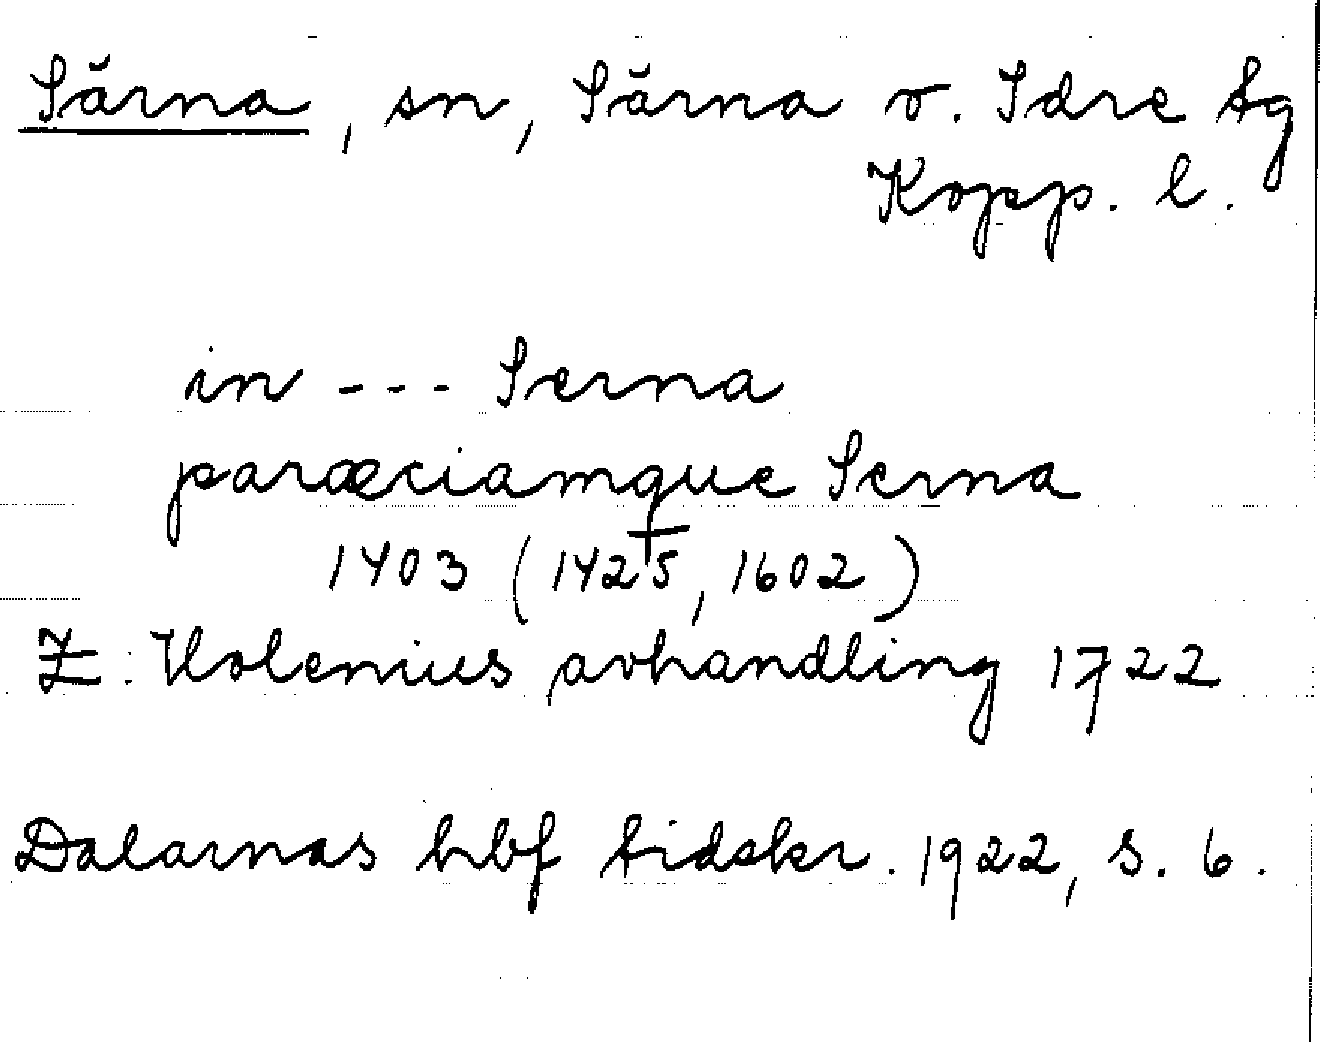 Särna, sn, Särna o. Idre tg
Kopp. l.
in --- Serna
paræciamque Serna
1403 (1425, 1602)
Z: Holenius avhandling 1722
Dalarnas hbf tidskr. 1922, s. 6.